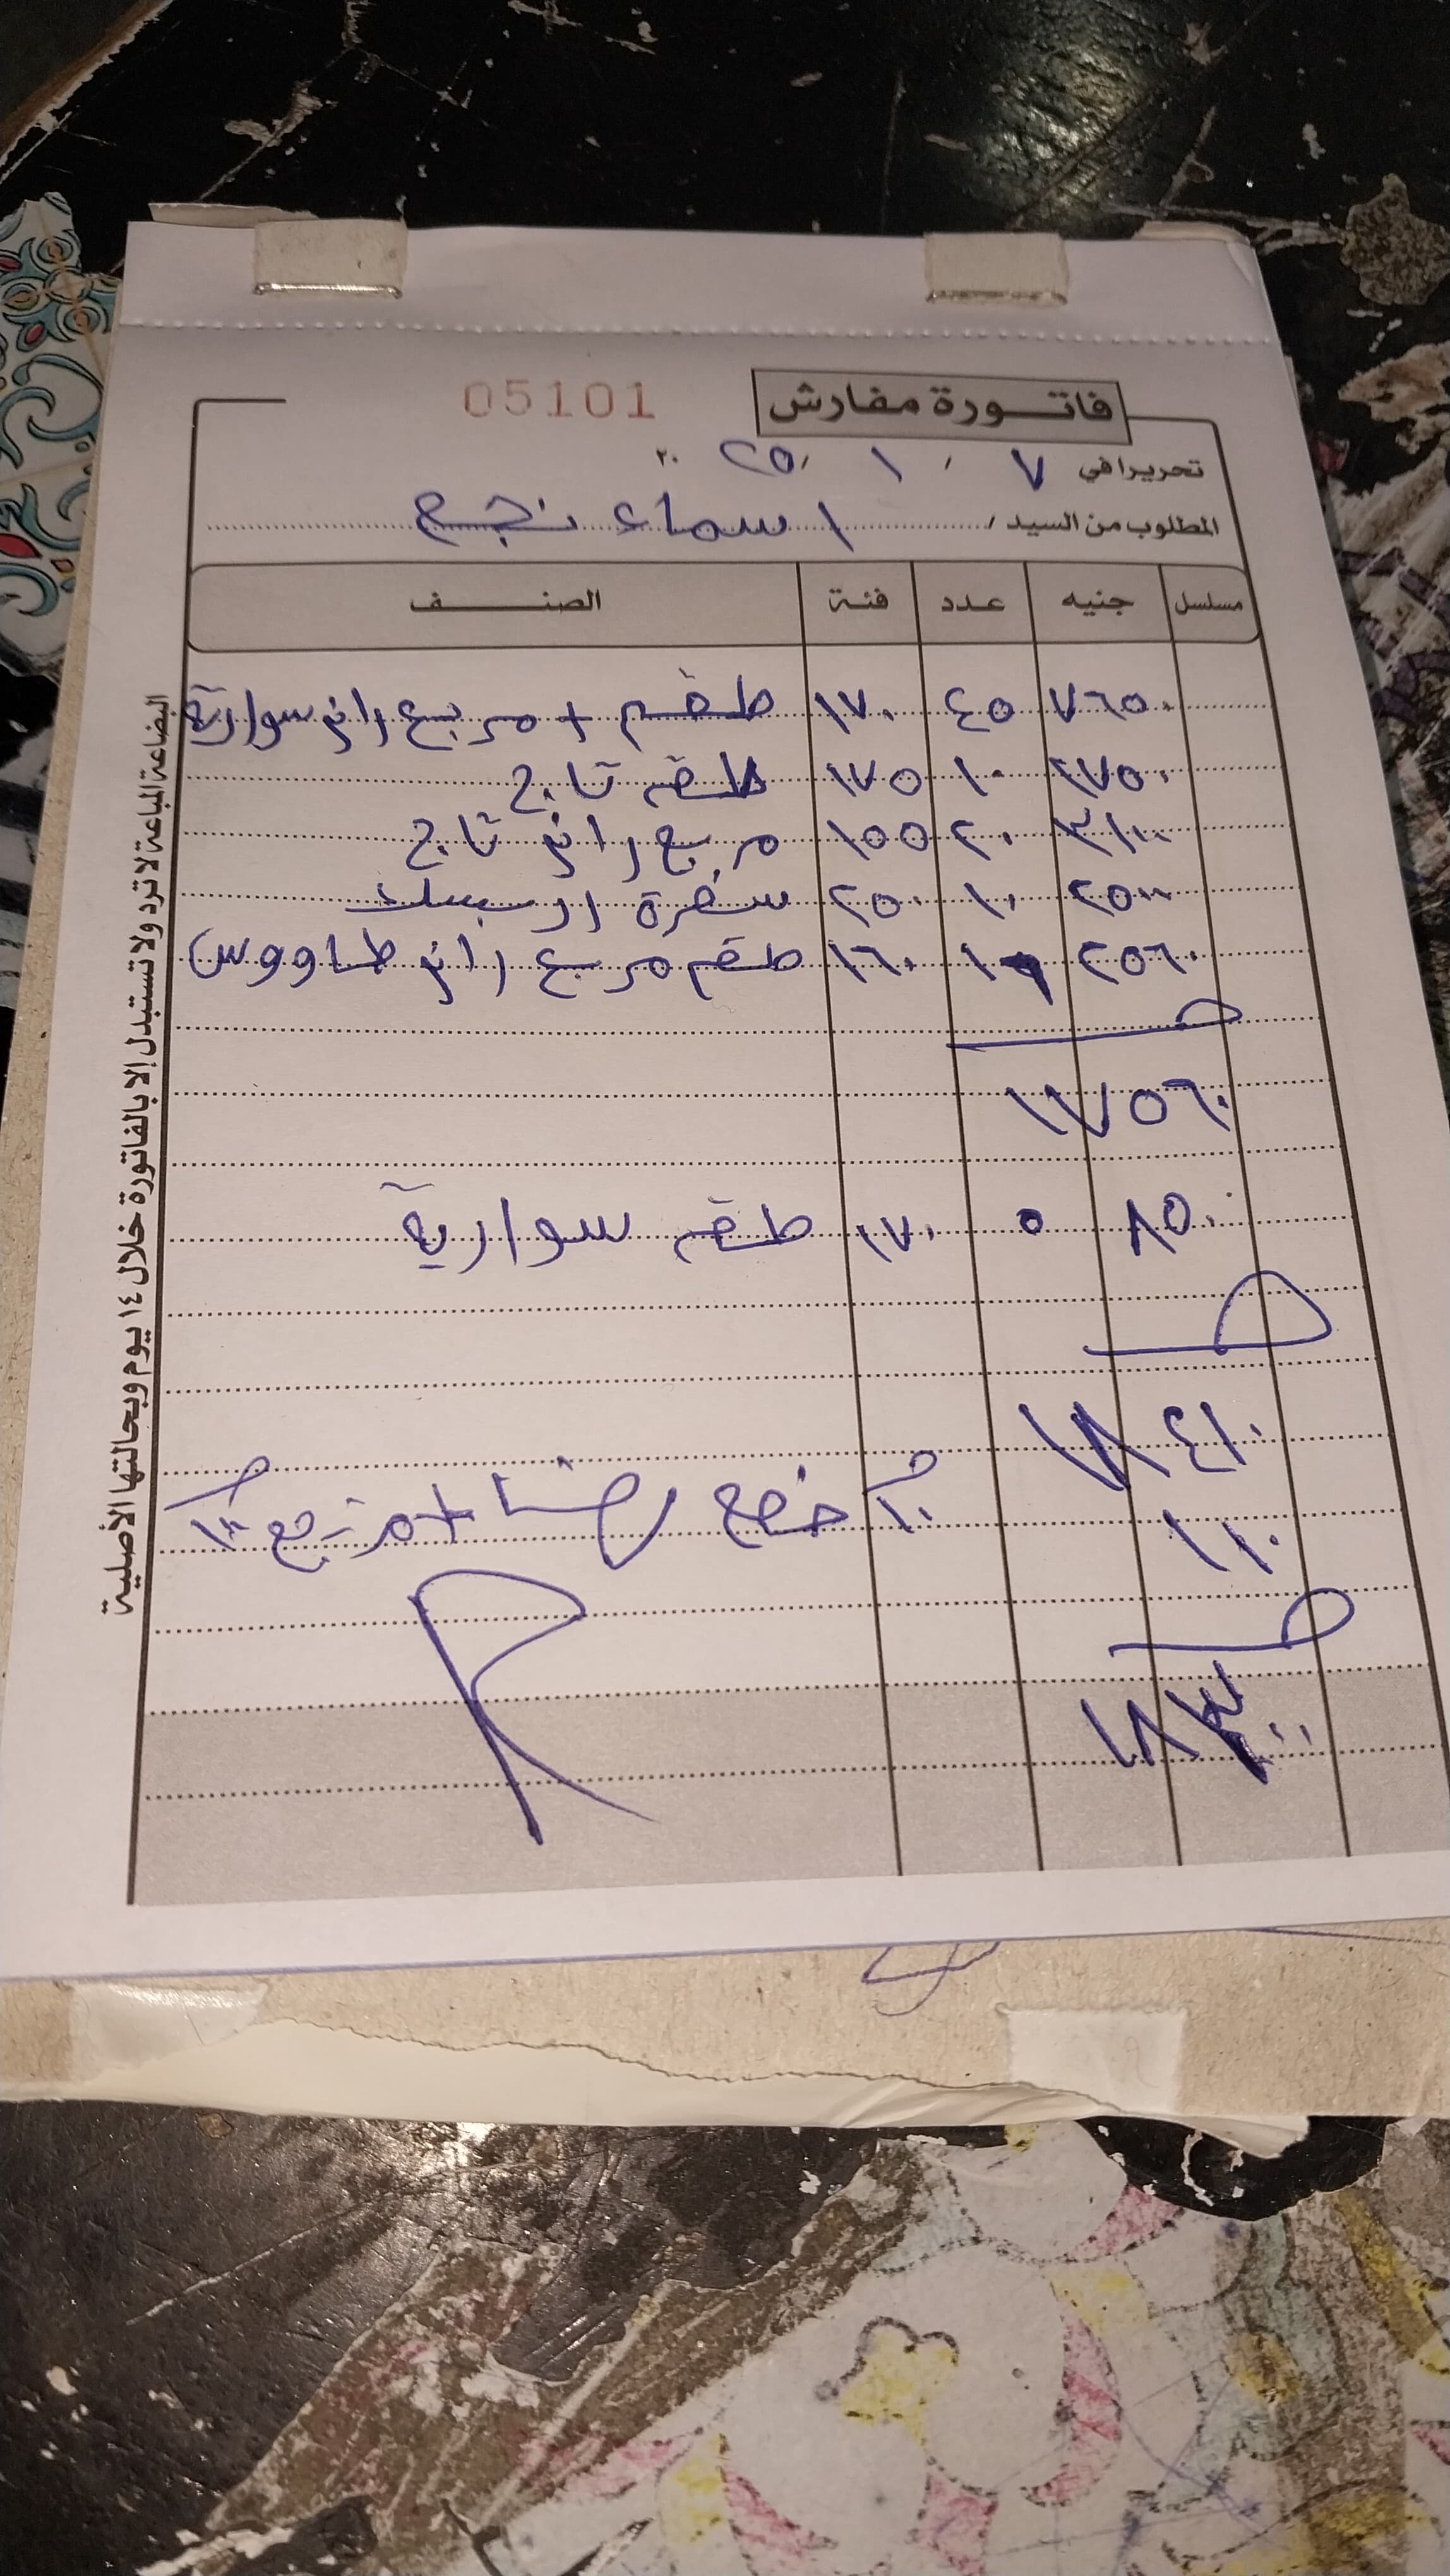 فاتورة مفارش 05101
تحريرا في ٧ / ١ / ٢٠٢٥
المطلوب من السيد / اسماء نجم
مسلسل جنيه عدد فئة الصنف
٧٦٥٠ ٤٥ ١٧٠ طقم + مربع رانر سوارية
١٧٥٠ ١٠ ١٧٥ طقم تاج
٣١٠٠ ٢٠ ١٥٥ مربع رانر تاج
٢٥٠٠ ١٠ ٢٥٠ سفرة اربسك
٢٥٦٠ ١٦ ١٦٠ طقم مربع رانر طاووس
١٧٥٦٠
٨٥٠ ٥ ١٧٠ طقم سوارية
١٨٤١٠
١١٠ ١٠ خصم رضا + مرتجع ١٠٠
١٨٣٠٠
البضاعة المباعة لا ترد ولا تستبدل إلا بالفاتورة خلال ١٤ يوم وبحالتها الأصلية